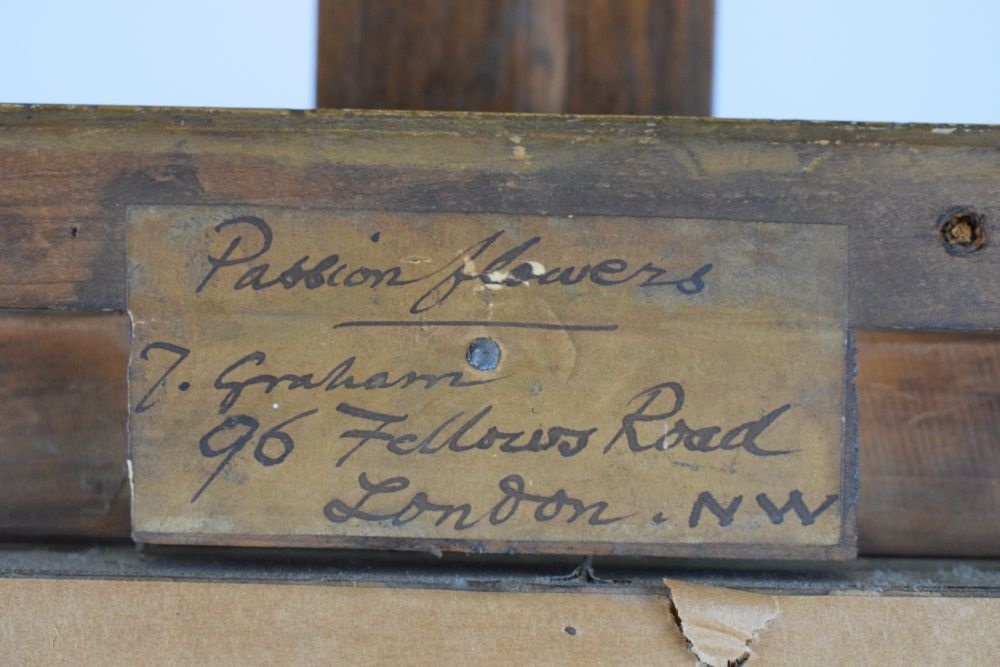 Passion flowers
T. Graham
96 Fellows Road
London. NW